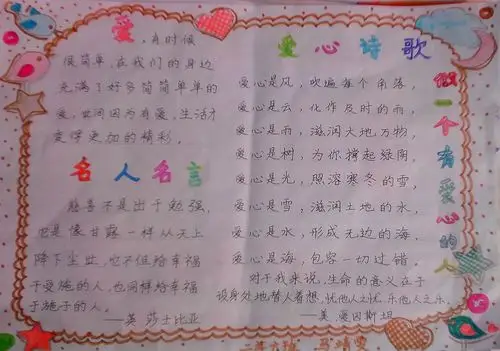 爱,有时候
很简单,在我们的身边
充满了好多简简单单的
爱,世间因为有爱,生活才
变得更加的精彩。
名人名言
慈善不是出于勉强,
它是像甘露一样从天上
降下尘世,它不但给幸福
于受施的人,也同样给幸福
于施予的人。
——英 莎士比亚
爱心诗歌
爱心是风,吹遍每个角落,
爱心是云,化作及时的雨,
爱心是雨,滋润大地万物,
爱心是树,为你撑起绿阴,
爱心是光,照溶寒冬的雪,
爱心是雪,滋润土地的水,
爱心是水,形成无边的海,
爱心是海,包容一切过错。
对于我来说,生命的意义在于
设身处地替人着想,忧他人之忧,乐他人之乐。
——美.爱因斯坦
做一个有爱心的人